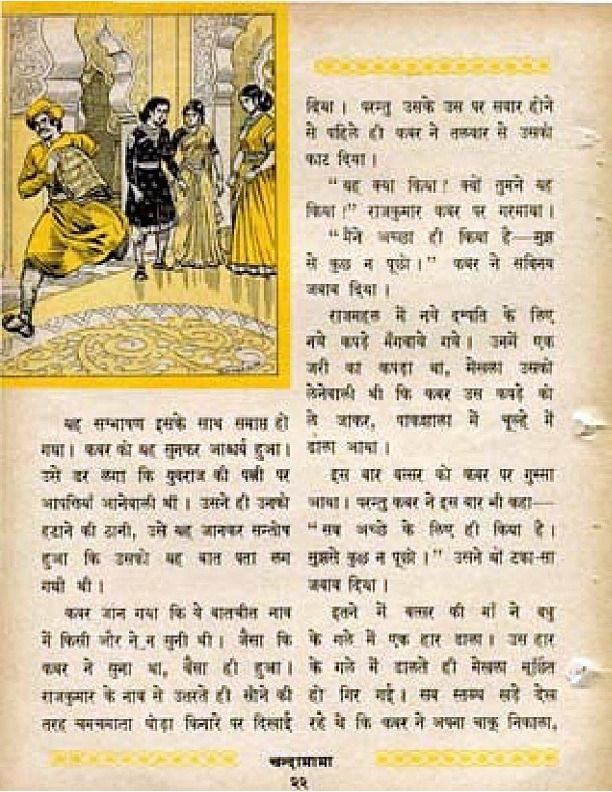 यह सम्भाषण इसके साथ समाप्त हो
गया। कवर को यह सुनकर आश्चर्य हुआ।
उसे डर लगा कि युवराज की पत्नी पर
आपत्तियाँ आनेवाली थीं। उसने ही उनको
हटाने की ठानी, उसे यह जानकर सन्तोष
हुआ कि उसको यह बात पता लग
गयी थी।
कवर जान गया कि ये बातचीत नाव
में किसी और ने न सुनी थी। जैसा कि
कवर ने सुना था, वैसा ही हुआ।
राजकुमार के नाव से उतरते ही सोने की
तरह चमचमाता घोड़ा किनारे पर दिखाई
दिया। परन्तु उसके उस पर सवार होने
से पहिले ही कवर ने तलवार से उसको
काट दिया।
"यह क्या किया? क्यों तुमने यह
किया?" राजकुमार कवर पर गरमाया।
"मैंने अच्छा ही किया है—मुझ
से कुछ न पूछो।" कवर ने सविनय
जवाब दिया।
राजमहल में नये दम्पति के लिए
नये कपड़े मँगवाये गये। उनमें एक
जरी का कपड़ा था, मेखला उसको
लेनेवाली थी कि कवर उस कपड़े को
ले जाकर, पाकशाला में चूल्हे में
डाल आया।
इस बार वत्सर को कवर पर गुस्सा
आया। परन्तु कवर ने इस बार भी कहा—
"सब अच्छे के लिए ही किया है।
मुझसे कुछ न पूछो।" उसने यों टका-सा
जवाब दिया।
इतने में वत्सर की माँ ने वधु
के गले में एक हार डाला। उस हार
के गले में डालते ही मेखला मूर्छित
हो गिर गई। सब स्तब्ध खड़े देख
रहे थे कि कवर ने अपना चाकू निकाला,
चन्दामामा
२२